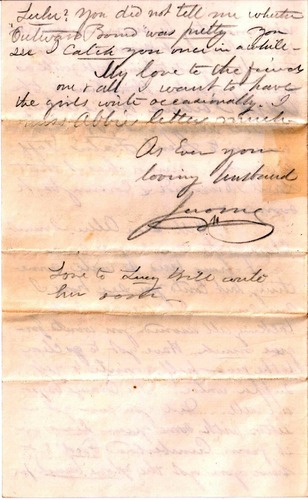 Lulu? You did not tell me whether
was pretty you
see I catch you once in a while -
My love to the friends
one & all I want to have
the girls write occasionally. I
miss Abbies letters much
As Ever your
loving husband
Jerome
Love to Lucy Will write
her soon -